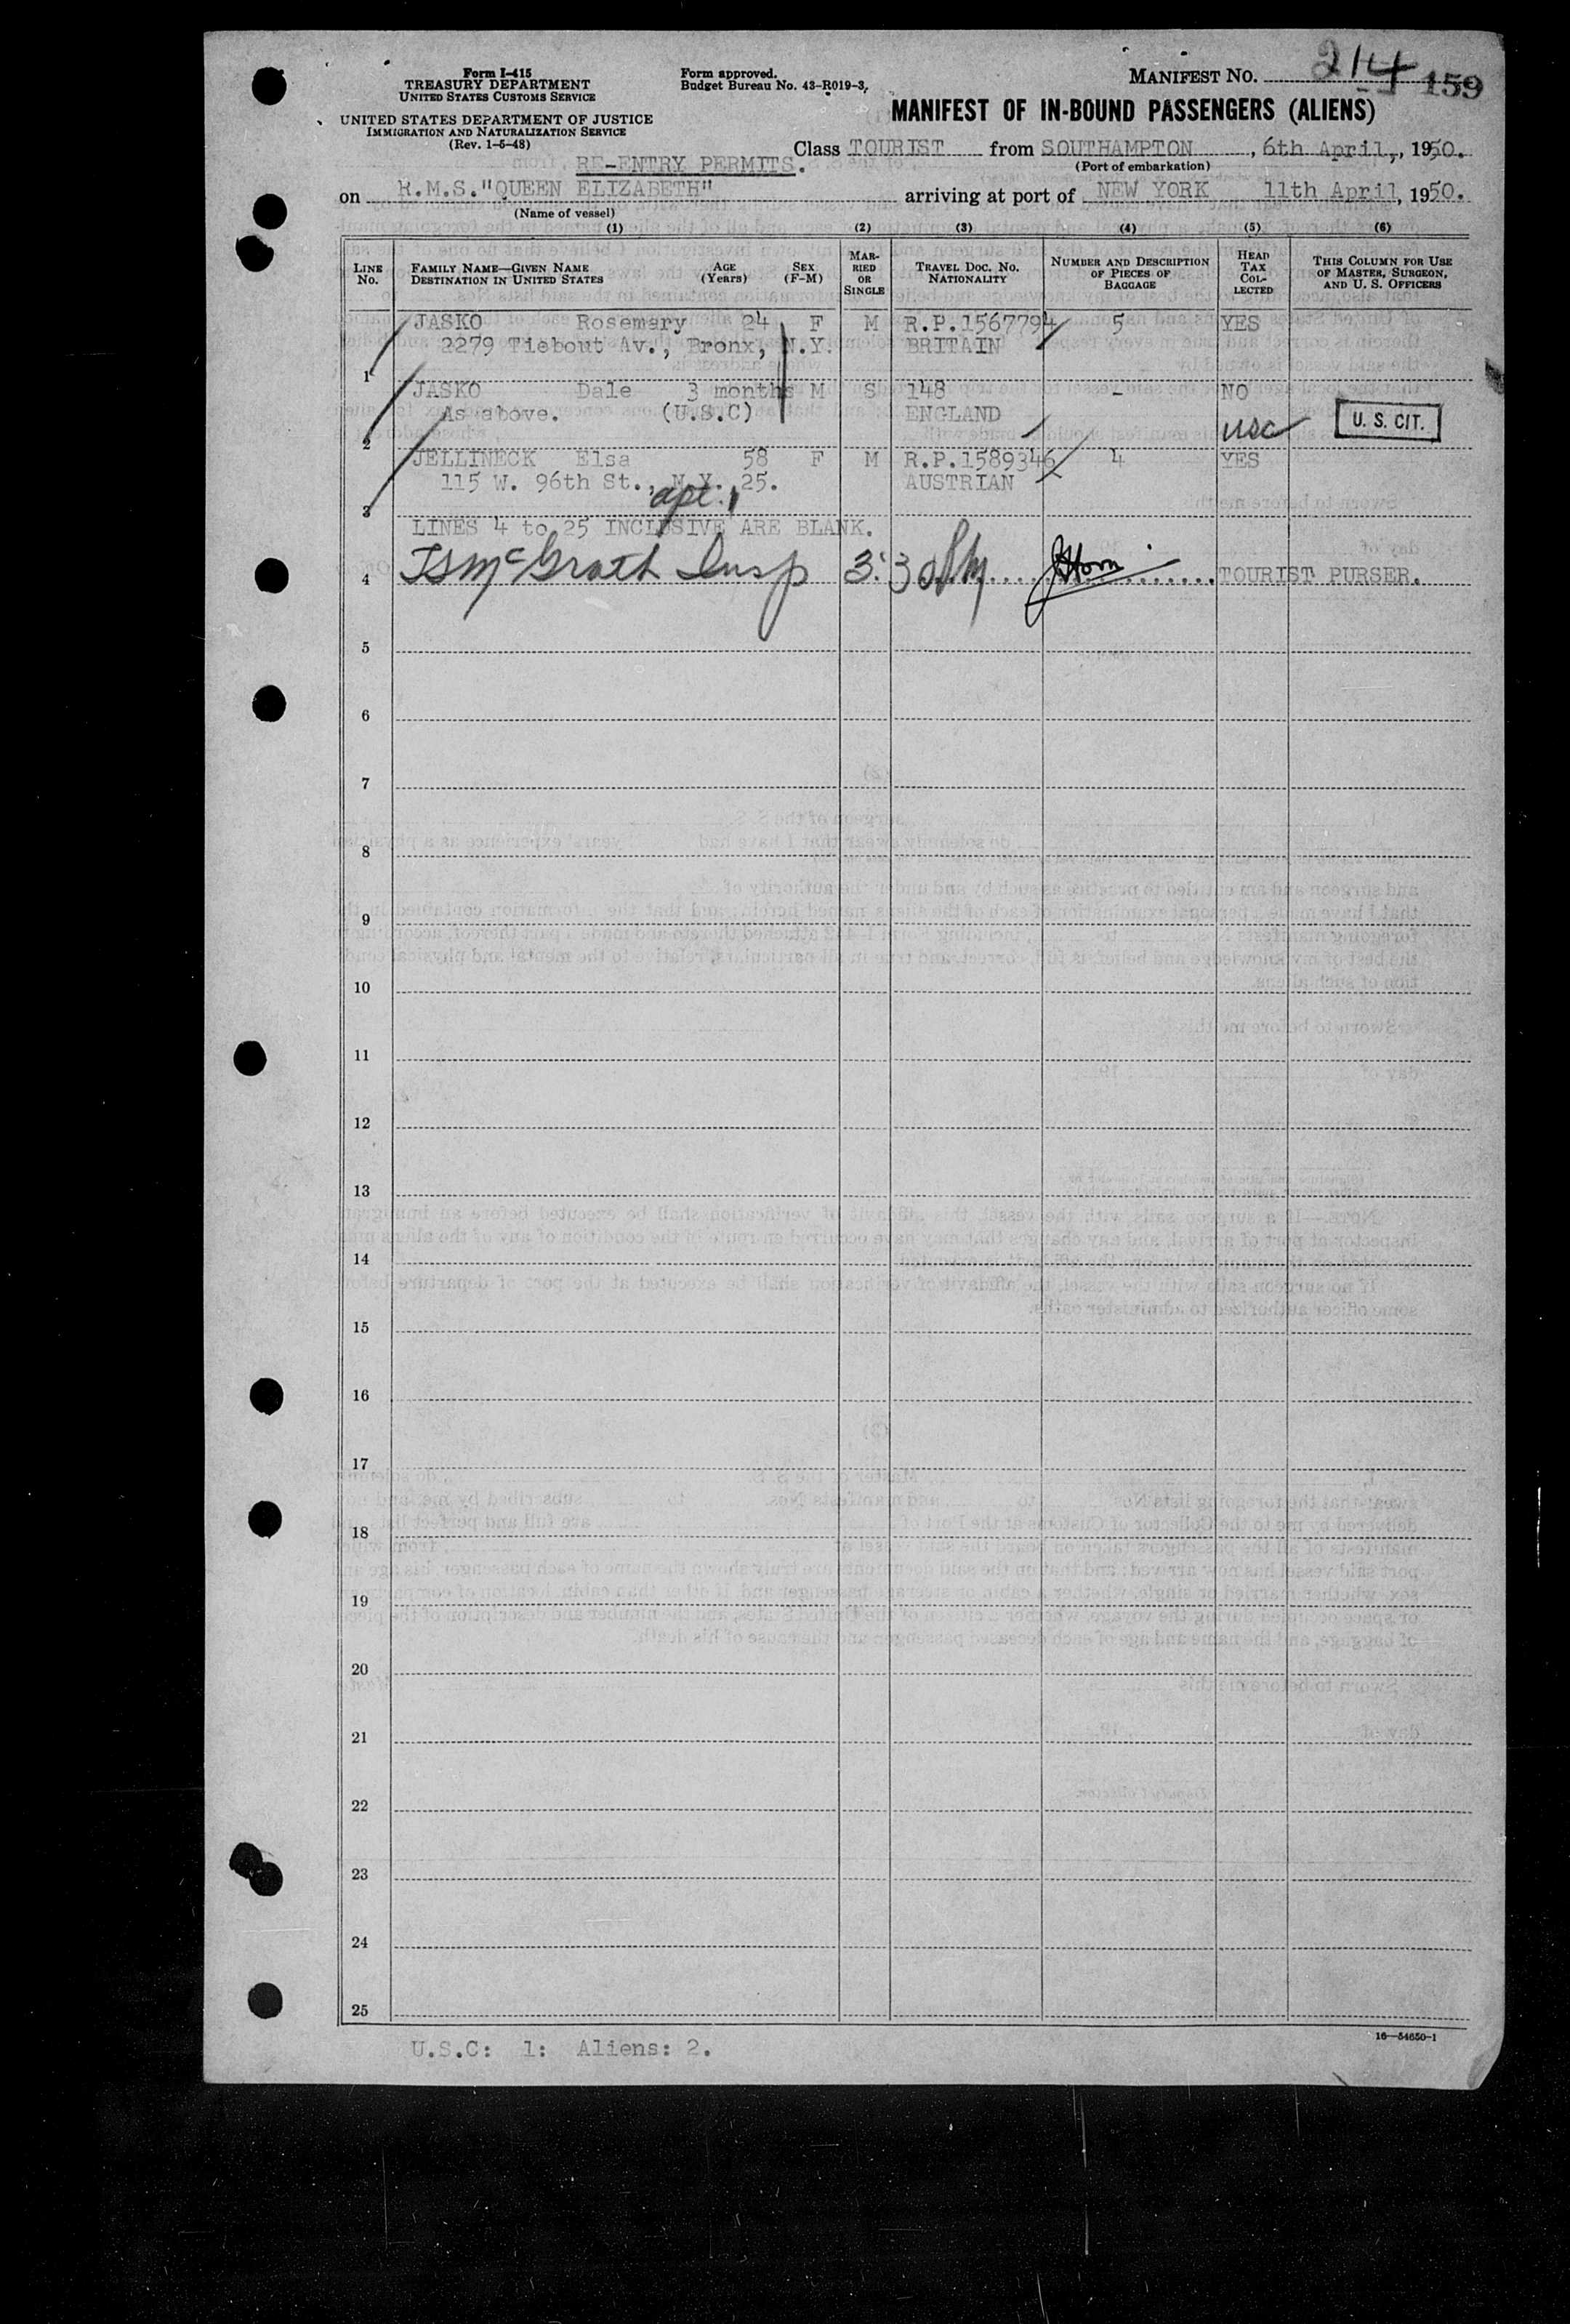 Form I-415
TREASURY DEPARTMENT
UNITED STATES CUSTOMS SERVICE
UNITED STATES DEPARTMENT OF JUSTICE
IMMIGRATION AND NATURALIZATION SERVICE
(Rev. 1-5-48)
Form approved.
Budget Bureau No. 43-R019-3.
MANIFEST NO. 214 159
MANIFEST OF IN-BOUND PASSENGERS (ALIENS)
Class TOURIST from SOUTHAMPTON, 6th April, 1950.
(Port of embarkation)
RE-ENTRY PERMITS.
on R.M.S."QUEEN ELIZABETH" arriving at port of NEW YORK 11th April, 1950.
(Name of vessel)
(1) (2) (3) (4) (5) (6)
LINE No. FAMILY NAME—GIVEN NAME DESTINATION IN UNITED STATES AGE (Years) SEX (F-M) MARRIED OR SINGLE TRAVEL DOC. NO. NATIONALITY NUMBER AND DESCRIPTION OF PIECES OF BAGGAGE HEAD TAX COLLECTED THIS COLUMN FOR USE OF MASTER, SURGEON, AND U. S. OFFICERS
JASKO Rosemary 24 F M R.P.1567794 5 YES
2279 Tiebout Av., Bronx, N.Y. BRITAIN
1
JASKO Dale 3 months M S 148 - NO
As above. (U.S.C) ENGLAND usc U. S. CIT.
2
JELLINECK Elsa 58 F M R.P.1589346 4 YES
115 W. 96th St., N.Y. 25. AUSTRIAN
apt. 1
3
LINES 4 to 25 INCLUSIVE ARE BLANK.
4 McGrath Insp TOURIST PURSER.
5
6
7
8
9
10
11
12
13
14
15
16
17
18
19
20
21
22
23
24
25
16—54650-1
U.S.C: 1: Aliens: 2.